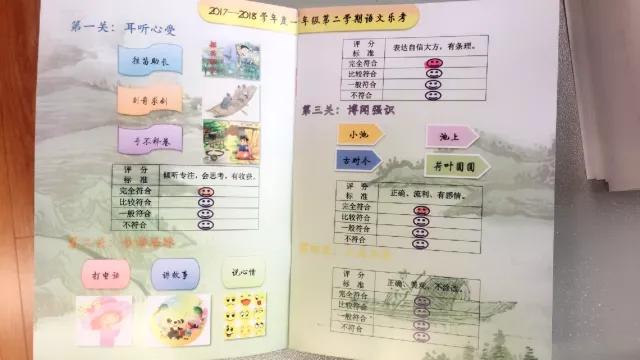 2017—2018学年度一年级第二学期语文乐考
第一关：耳听心受
揠苗助长
刻舟求剑
手不释卷
评分标准
倾听专注，会思考，有收获。
完全符合
比较符合
一般符合
不符合
打电话
讲故事
说心情
评分标准
表达自信大方，有条理。
完全符合
比较符合
一般符合
不符合
第三关：博闻强识
小池
池上
古对今
荷叶圆圆
评分标准
正确、流利、有感情。
完全符合
比较符合
一般符合
不符合
评分标准
正确、美观、不涂改。
完全符合
比较符合
一般符合
不符合